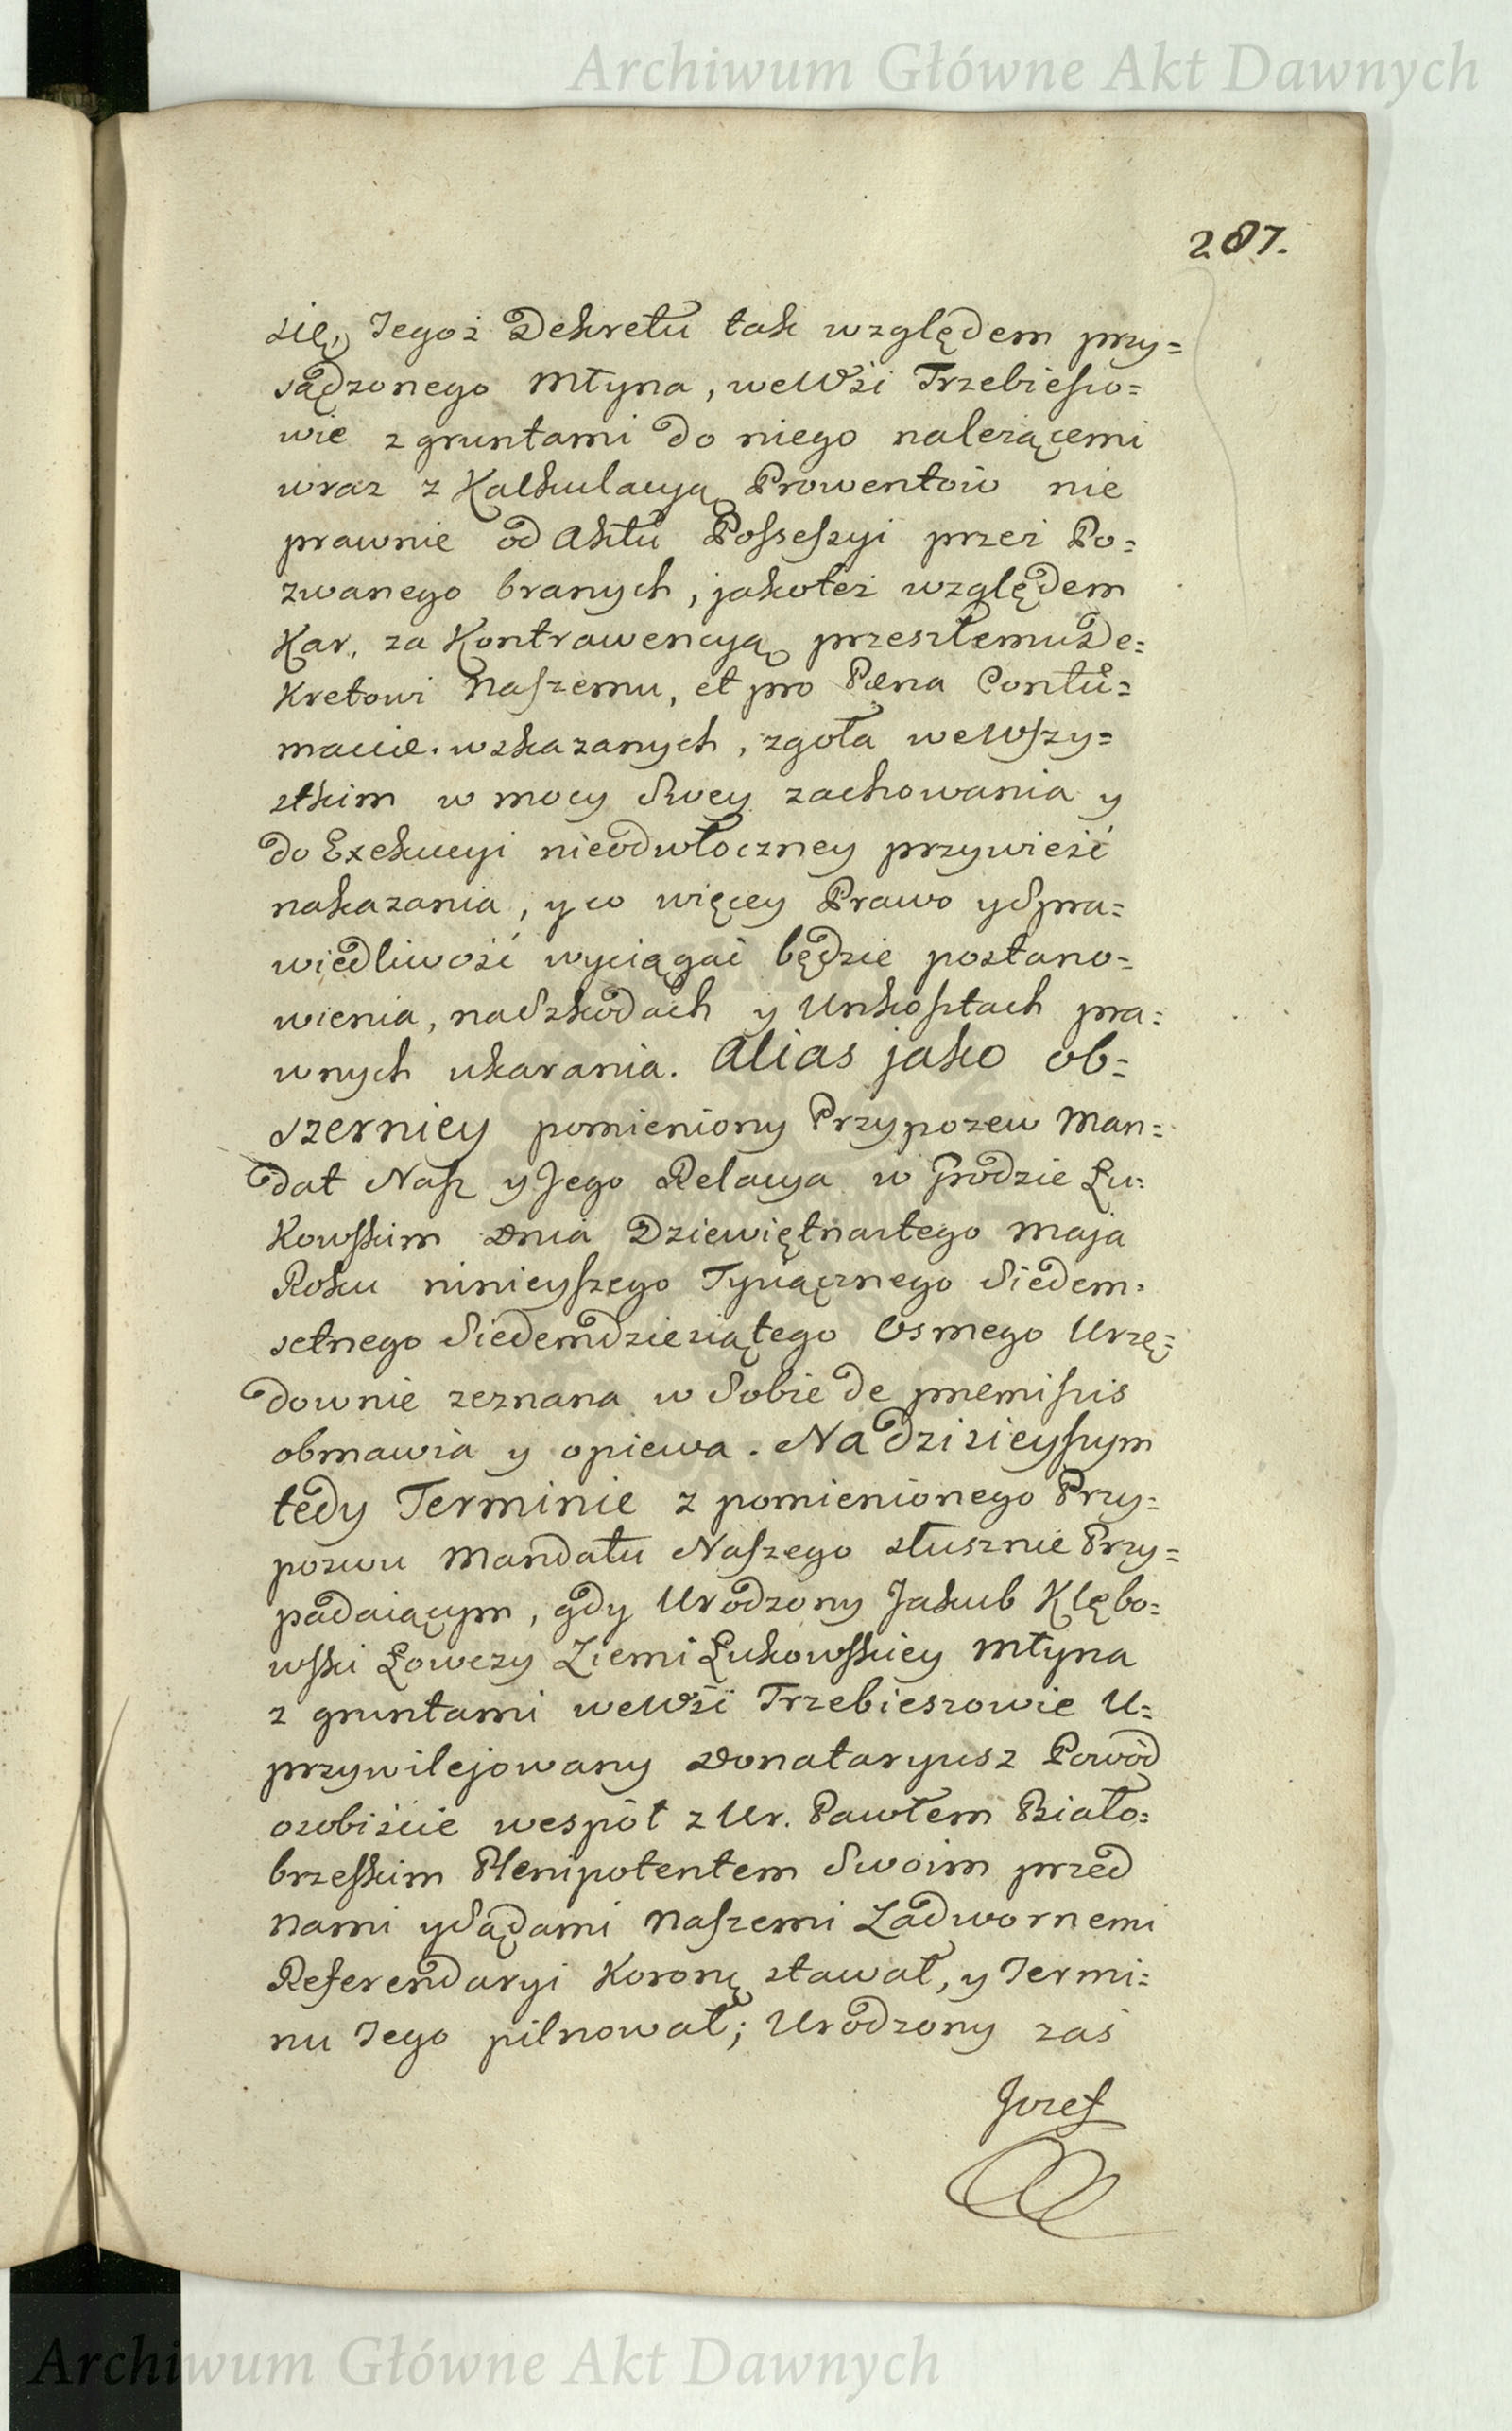 Archiwum Główne Akt Dawnych
287.
się, Tegoż Dekretu tak względem przy=
sądzonego Młyna, we Wsi Trzebieszo=
wie z gruntami do niego należącemi
wraz z Kalkulacyą Prowentow nie
prawnie od Aktu Possessyi przez Po=
zwanego branych, jakoteż względem
Kar, za Kontrawencyą przeszłemu De=
kretowi Naszemu, et pro Pœna Contu=
maciæ. wskazanych, zgoła we Wszy=
stkim w mocy Swey zachowania y
do Exekucyi nieodwłoczney przywieść
nakazania, y co więcey Prawo y Spra=
wiedliwość wyciągać będzie postano=
wienia, na Szkodach y Unkosztach pra=
wnych ukarania. Alias jako ob=
szerniey pomieniony Przypozew Man=
dat Nasz y Jego Relacya w Grodzie Łu=
kowskim Dnia Dziewiętnastego Maja
Roku ninieyszego Tysiącznego Siedem=
setnego Siedemdziesiątego Osmego Urzę=
downie zeznana w Sobie de præmissis
obmawia y opiewa. Na dzisieyszym
tedy Terminie z pomienionego Przy=
pozwu Mandatu Naszego słusznie Przy=
padaiącym, gdy Urodzony Jakub Klębo=
wski Łowczy Ziemi Łukowskiey Młyna
z gruntami we Wsi Trzebieszowie U=
przywilejowany Donataryusz Powod
osobiście wespół z Ur. Pawłem Biało=
brzeskim Plenipotentem Swoim przed
Nami y Sądami Naszemi Zadwornemi
Referendaryi Koronę stawał, y Termi=
nu Tego pilnował; Urodzony zaś
Jozef
Archiwum Główne Akt Dawnych